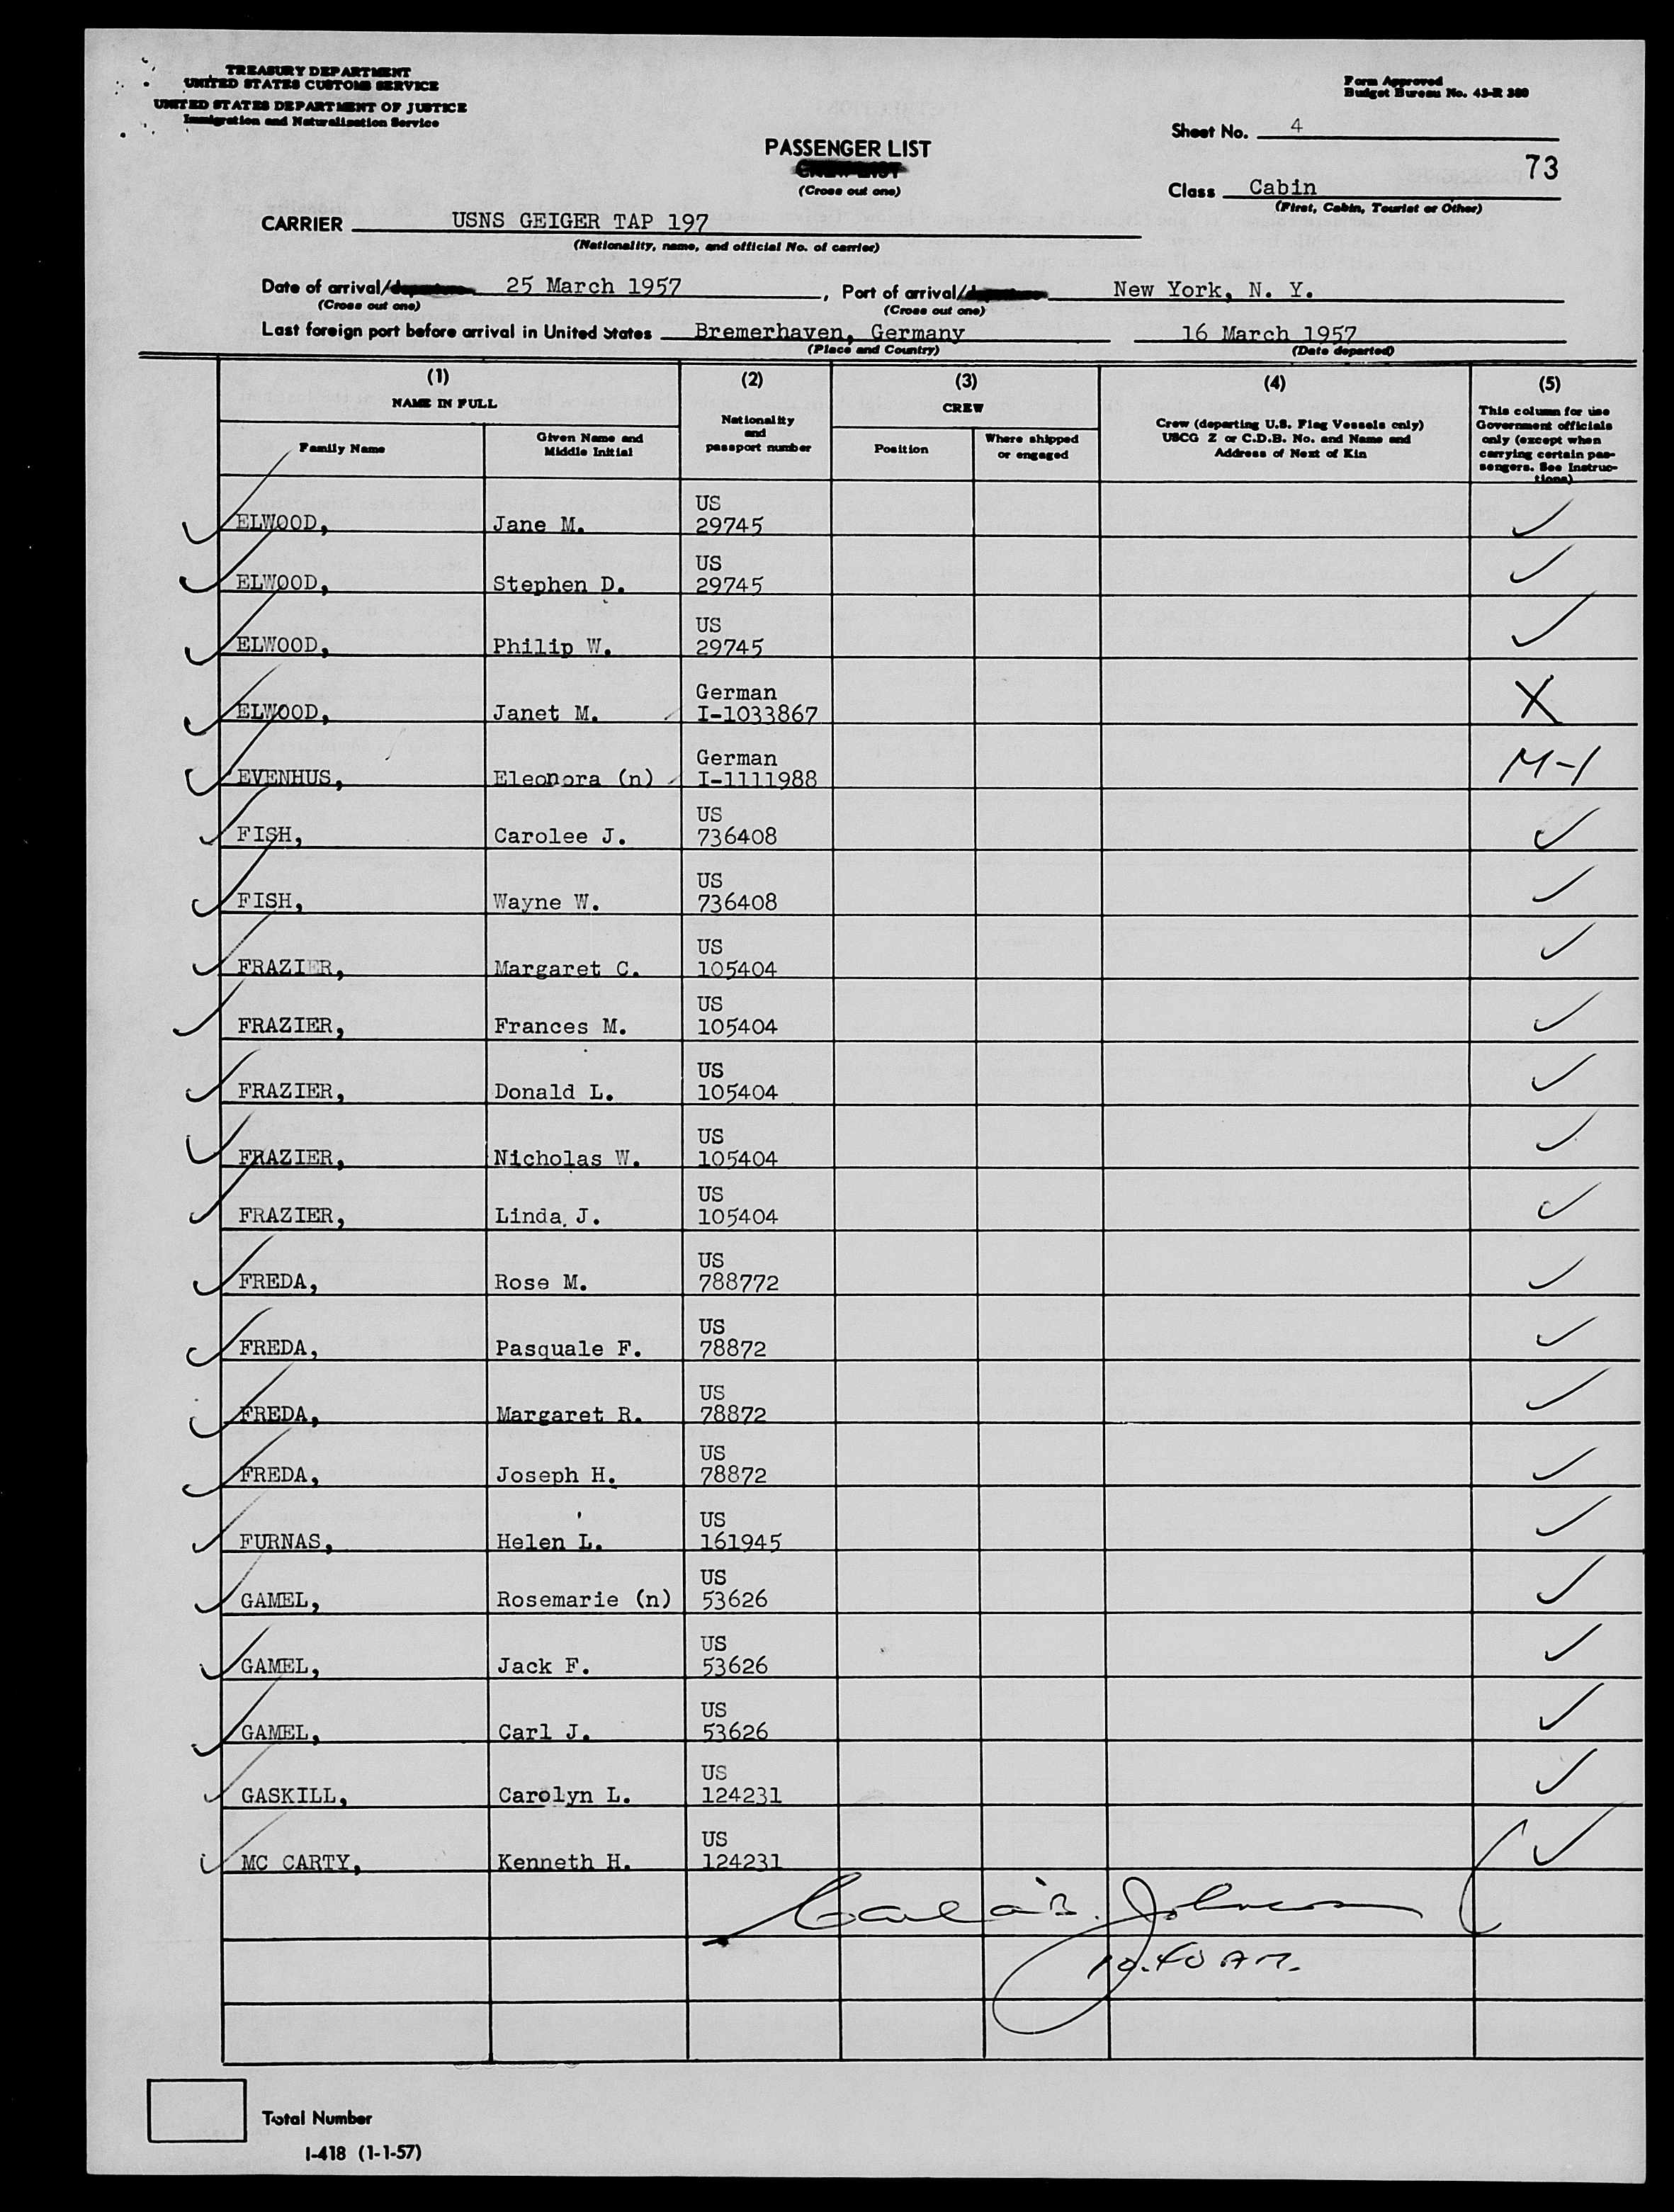 TREASURY DEPARTMENT
UNITED STATES CUSTOMS SERVICE
UNITED STATES DEPARTMENT OF JUSTICE
Immigration and Naturalization Service
Form Approved
Budget Bureau No. 43-R 380
Sheet No. 4
PASSENGER LIST
(Cross out one)
73
Class Cabin
(First, Cabin, Tourist or Other)
CARRIER USNS GEIGER TAP 197
(Nationality, name, and official No. of carrier)
Date of arrival/departure 25 March 1957, Port of arrival/departure New York, N. Y.
(Cross out one) (Cross out one)
Last foreign port before arrival in United States Bremerhaven, Germany 16 March 1957
(Place and Country) (Date departed)
(1) (2) (3) (4) (5)
NAME IN FULL
Family Name
Given Name and
Middle Initial
Nationality
and
passport number
CREW
Position
Where shipped
or engaged
Crew (departing U.S. Flag Vessels only)
USCG Z or C.D.B. No. and Name and
Address of Next of Kin
This column for use
Government officials
only (except when
carrying certain pas-
sengers. See Instruc-
tions)
US
ELWOOD, Jane M. 29745
US
ELWOOD, Stephen D. 29745
US
ELWOOD, Philip W. 29745
German
ELWOOD, Janet M. I-1033867 X
German
EVENHUS, Eleonora (n) I-1111988 M-1
US
FISH, Carolee J. 736408
US
FISH, Wayne W. 736408
US
FRAZIER, Margaret C. 105404
US
FRAZIER, Frances M. 105404
US
FRAZIER, Donald L. 105404
US
FRAZIER, Nicholas W. 105404
US
FRAZIER, Linda J. 105404
US
FREDA, Rose M. 788772
US
FREDA, Pasquale F. 78872
US
FREDA, Margaret R. 78872
US
FREDA, Joseph H. 78872
US
FURNAS, Helen L. 161945
US
GAMEL, Rosemarie (n) 53626
US
GAMEL, Jack F. 53626
US
GAMEL, Carl J. 53626
US
GASKILL, Carolyn L. 124231
US
MC CARTY, Kenneth H. 124231
Johnson
10.40 AM.
Total Number
I-418 (1-1-57)